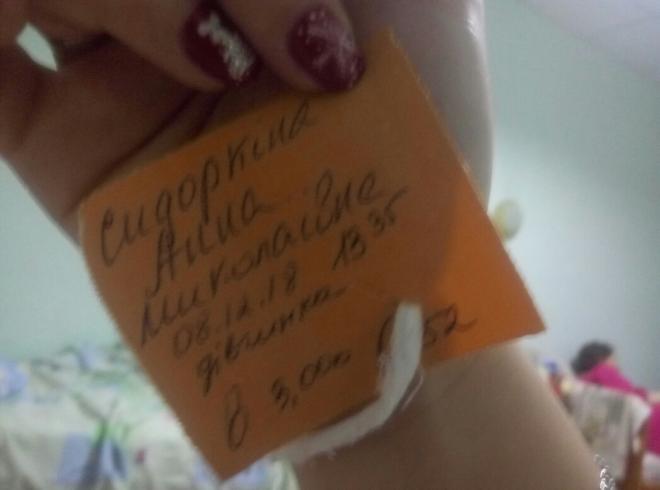 Сидоркіна
Анна
Миколаївна
08.12.18 13 35
дівчинка
В 3,000 52